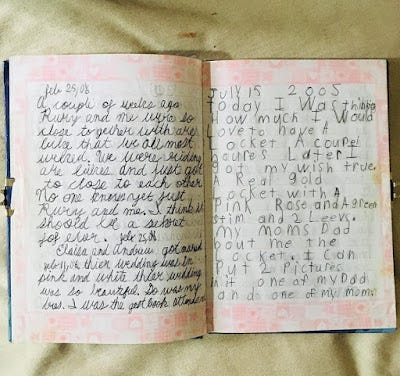 feb 25/08
A couple of weeks ago
Rury and me were so
close together with are
bike that we all most
wrecked. We were riding
are bikes and just got
to close to each other
No one knows yet just
Rury and me. I think it
should be a secret
for ever. feb 25/08
Elalea and Andrew got married
feb 11/06 thier wedding was in
pink and white thier wedding
was so beautiful. So was my
dres. I was the gest book attendent
JULY 15 2005
Today I Was thinking
How much I Would
Love to have A
Locket A coupel
houres Later I
got my wish true.
A Real gold
Locket with A
Pink Rose and A green
stim and 2 Leevs.
my moms Dad
bout me the
Locket. I can
Put 2 Pictures
in it one of my Dad
and one of my mom.